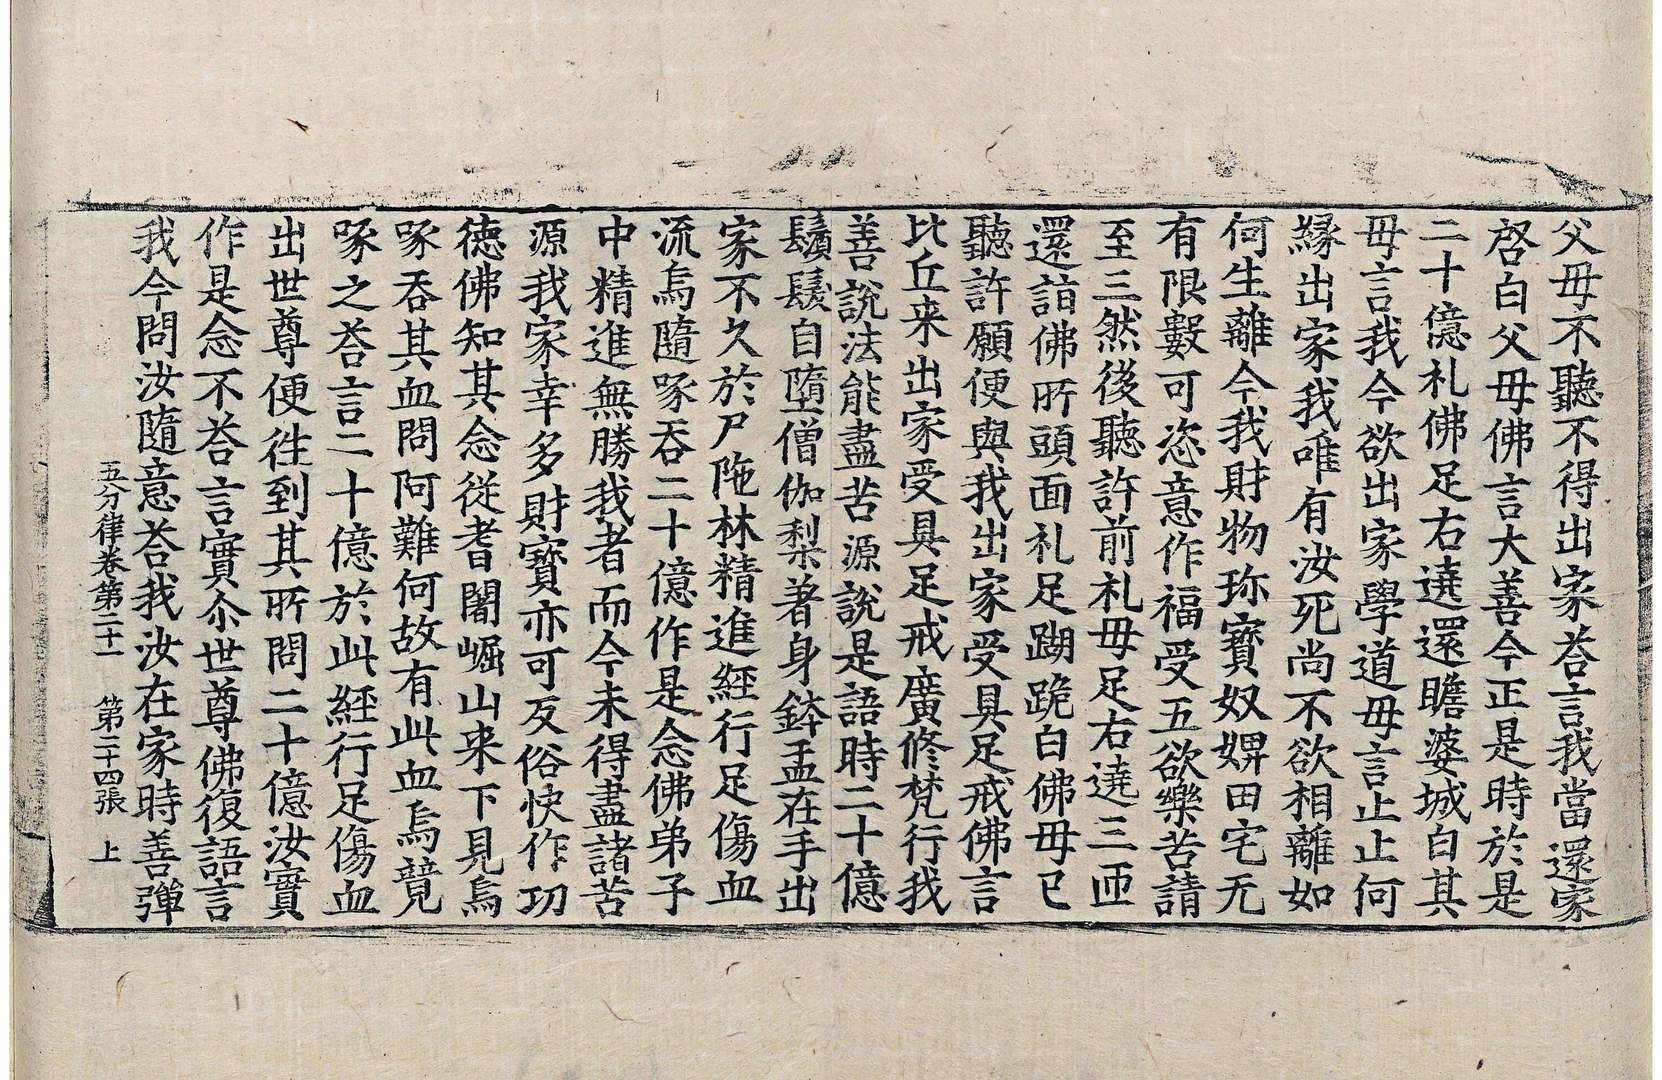 父毋不聽不得出家荅言我當還家
啓白父毋佛言大善今正是時於是
二十億礼佛足右遶還瞻婆城白其
毋言我今欲出家學道毋言止止何
縁出家我唯有汝死尚不欲相離如
何生離今我財物珎寶奴婢田宅无
有限數可恣意作福受五欲樂苦請
至三然後聽許前礼毋足右遶三匝
還詣佛所頭面礼足䠒跪白佛毋已
聽許願便與我出家受具足戒佛言
比丘来出家受具足戒廣修梵行我
善說法能盡苦源說是語時二十億
鬚髮自墮僧伽梨著身鉢盂在手出
家不久於尸陁林精進經行足傷血
流烏隨啄吞二十億作是念佛弟子
中精進無勝我者而今未得盡諸苦
源我家幸多財寶亦可反俗快作功
德佛知其念從耆闍崛山来下見烏
啄吞其血問阿難何故有此血烏競
啄之荅言二十億於此經行足傷血
出世尊便往到其所問二十億汝實
作是念不荅言實尒世尊佛復語言
我今問汝隨意荅我汝在家時善彈
五分律卷第二十一　第二十四張　上